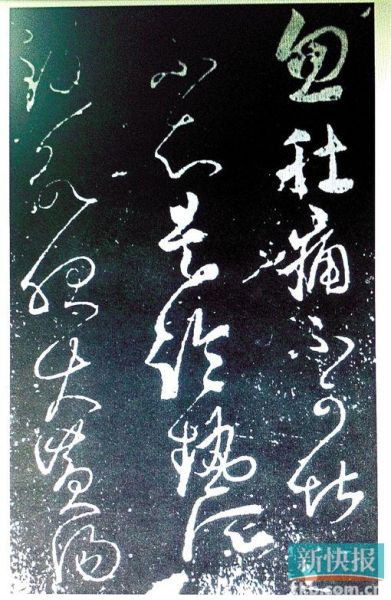 忽肚痛不可堪
不知是冷熱所
致欲服大黃湯
新快报